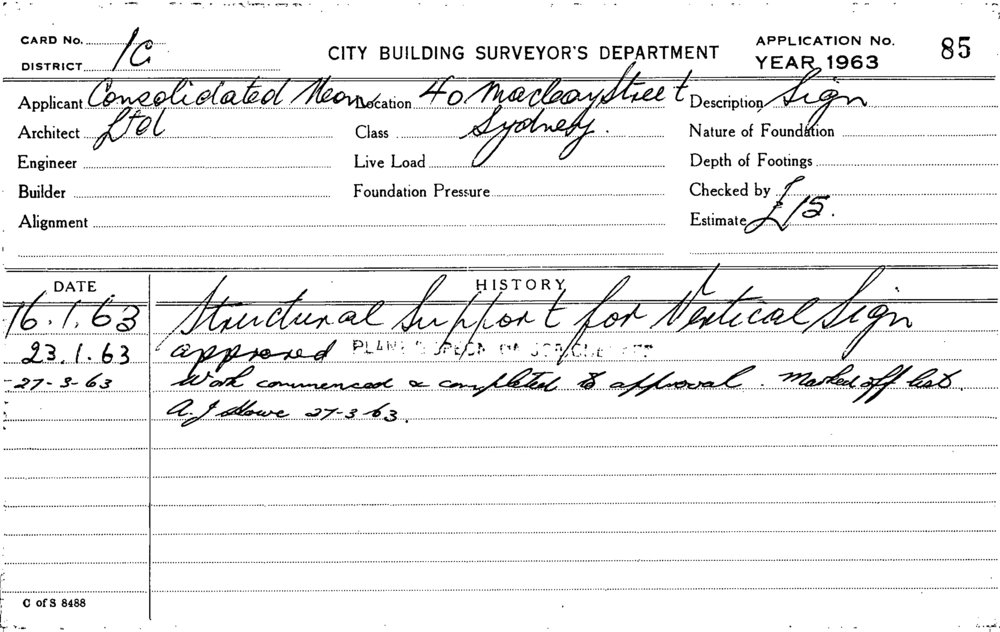 CARD No. 1C
DISTRICT
CITY BUILDING SURVEYOR'S DEPARTMENT
APPLICATION No. 85
YEAR 1963
Applicant Consolidated Neon Location 40 Macleay Street Description Sign
Architect Ltd Class Sydney. Nature of Foundation
Engineer Live Load Depth of Footings
Builder Foundation Pressure Checked by
Alignment Estimate £15.
DATE HISTORY
16.1.63 Structural Support for Vertical Sign
23.1.63 approved PLANS & SPECN
27-3-63 Work commenced & completed to approval. Marked off list.
A. J Howe 27-3-63.
C of S 8488